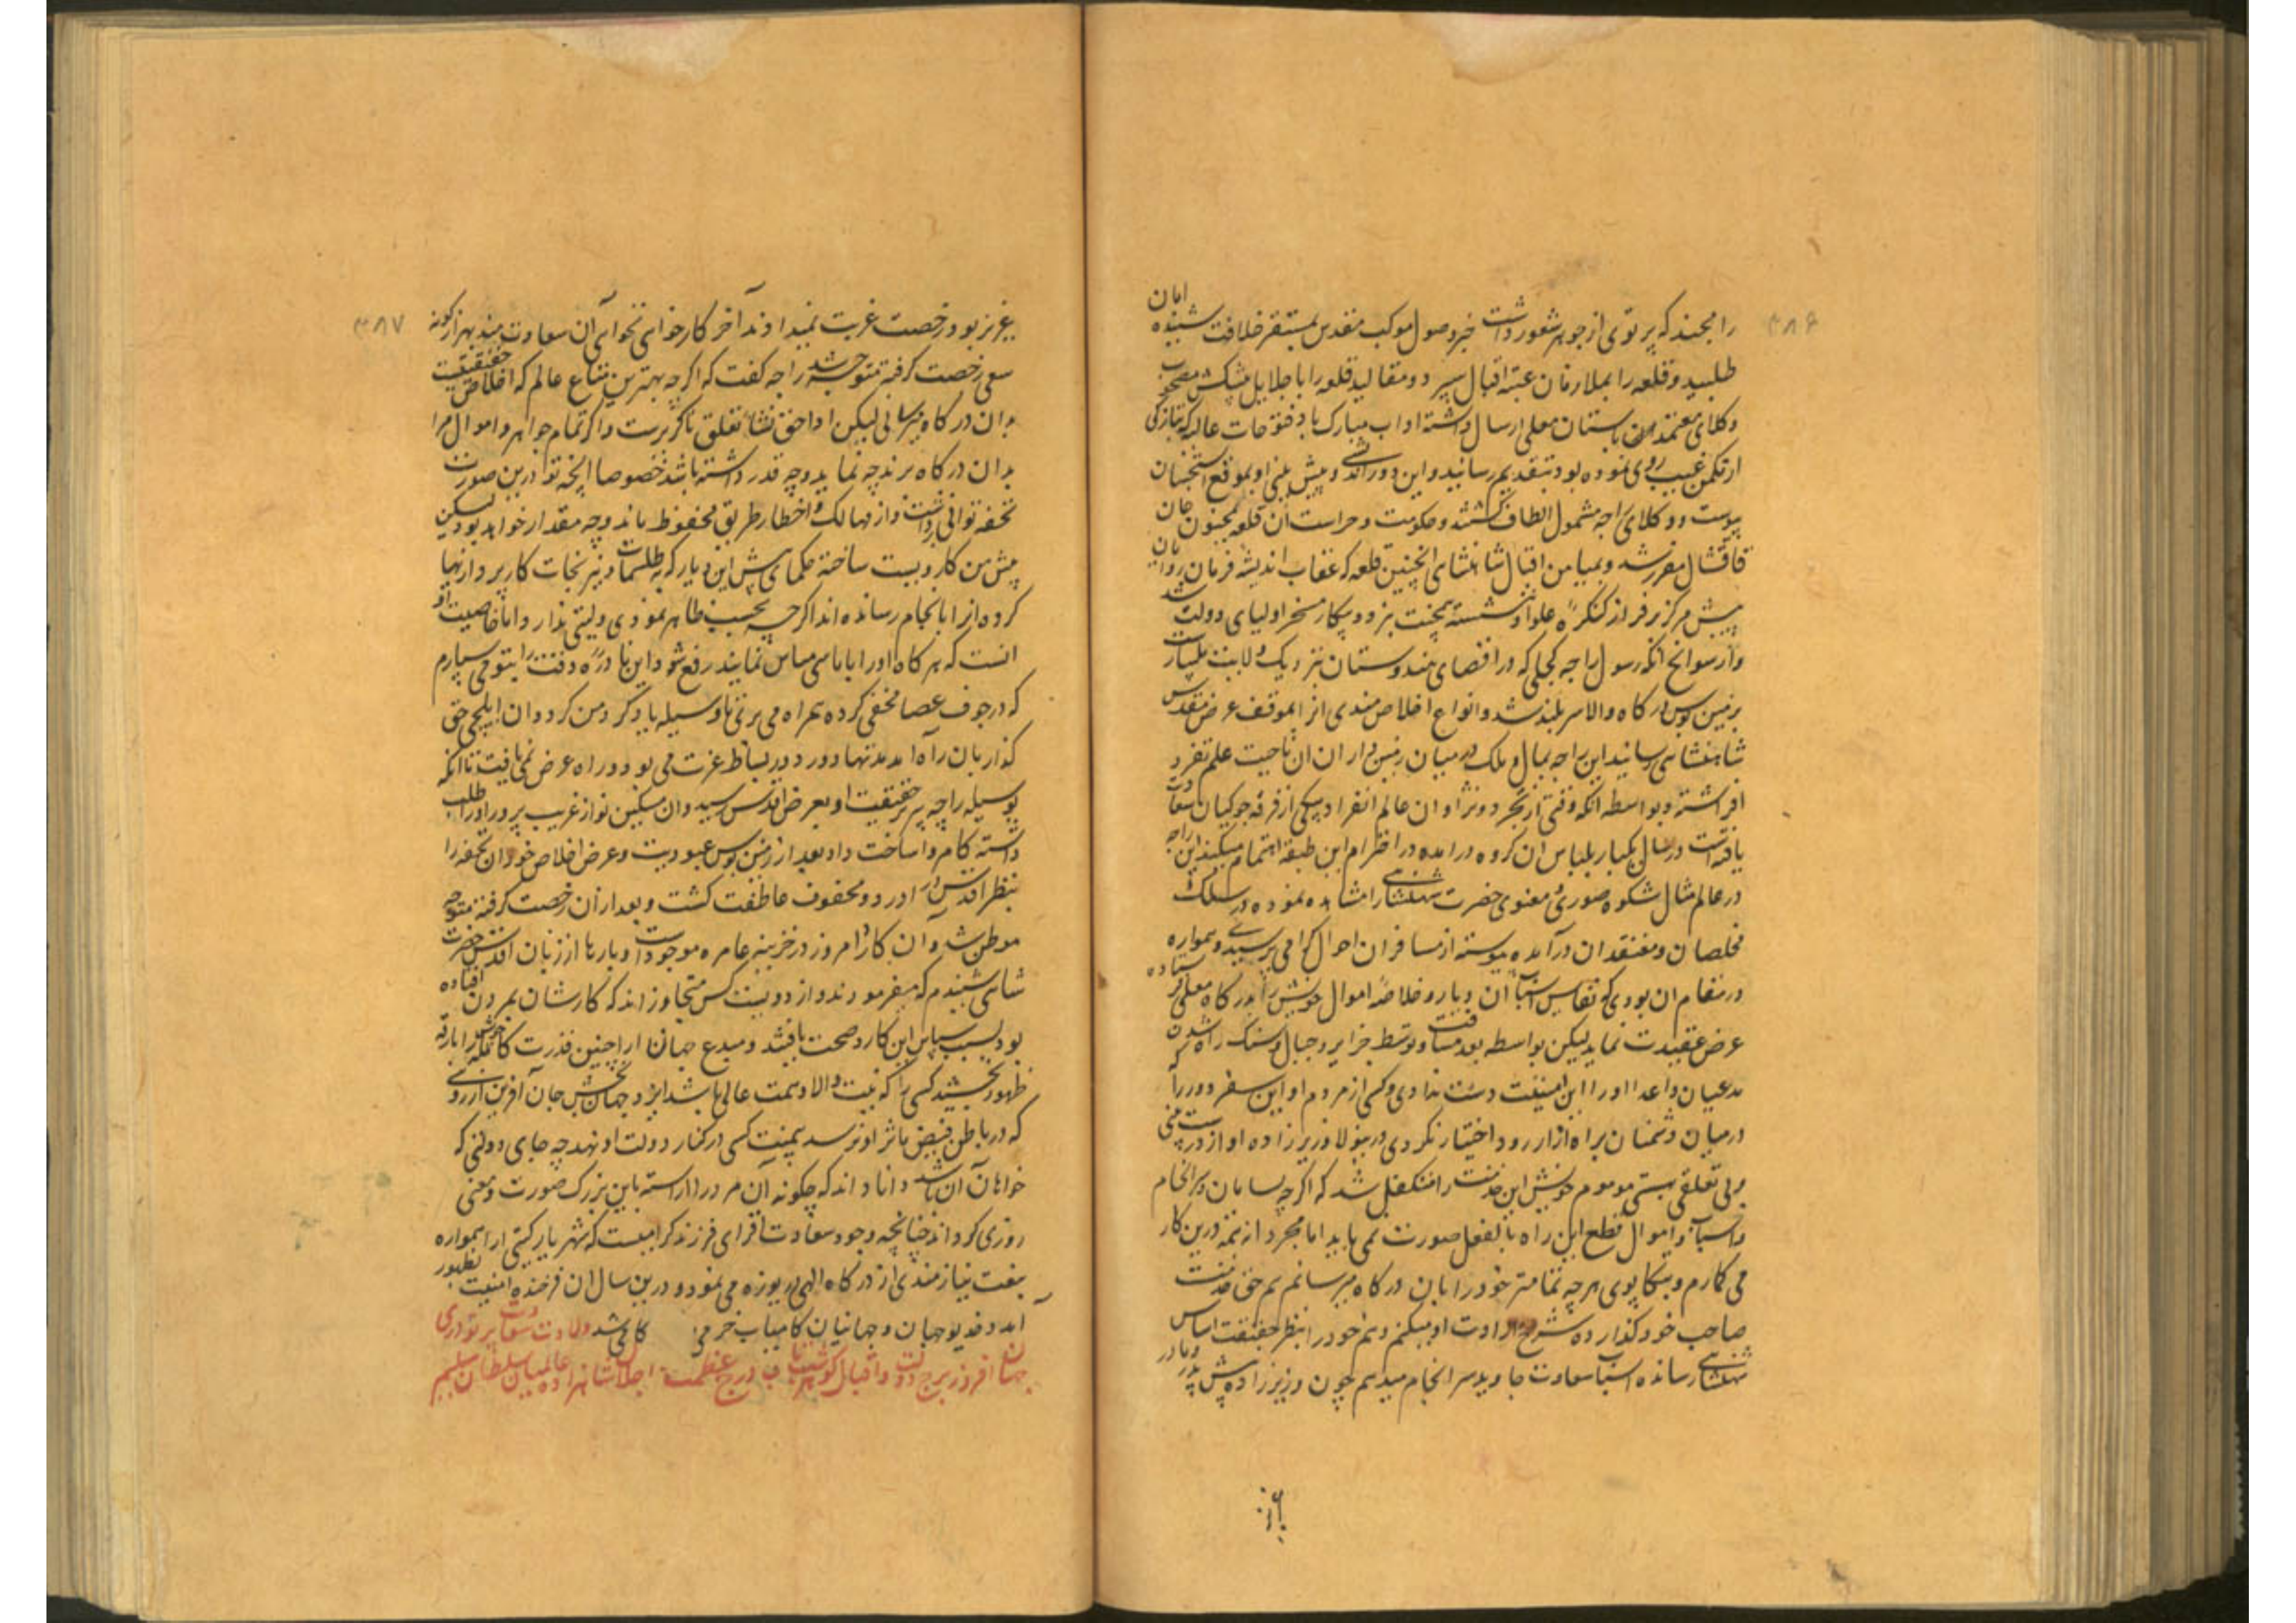 ۳۸۶
را مجند که پرتوی از جوهر شعور داشت خبر وصول موکب مقدس بمستقر خلافت شنیده امان
طلبید و قلعه را بملازمان عتبه اقبال سپرد و مقالید قلعه را با جلایل پیشکش مصحوب
وکلای معتمد باستان معلی ارسال داشته اداب مبارک باد فتوحات عالیه که بتازگی
از مکمن غیب روی نموده بود بتقدیم رسانید و این دور اندیشی و پیش بینی او بموقع استحسان
پیوست و وکلای راجه مشمول الطاف گشتند و حکومت و حراست آن قلعه بمجنون خان
قاقشال مقرر شد و بمیامن اقبال شاهنشاهی اینچنین قلعه که عقاب اندیشه فرمان روایان
پیش مرکز بر فراز کنگره علو او ننشسته بخت بز و دپیکار مسخر اولیای دولت شد
و از سوانح آنکه رسول راجه کجلی که در اقصای هندوستان نزدیک ولایت ملیبار است
بزمین بوس درگاه والا سربلند شد و انواع اخلاص مندی از بموقف عرض مقدس
شاهنشاهی رسانید این راجه بمال و ملک در میان زمین داران ان ناحیت علم تفرد
افراشته و بواسطه انکه وقتی از تجرد و نژادان عالم انفراد یکی از فرقه جوکیان سعادت
یافته است در سال یکبار بلباس ان گروه درامده در احترام این طبقه اهتمام میکند این راجه
در عالم مثال شکوه صوری و معنوی حضرت شهنشاهی را مشاهده نموده در سلک
مخلصان و معتقدان درآمده پیوسته از مسافران احوال گرامی پرسیدی و همواره
در مقام ان بودی که نفایس اسباب آن دیار و خلاصه اموال خویش را بدرگاه معلی فرستاده
عرض عقیدت نماید لیکن بواسطه بعد مسافت و توسط جزایر و جبال و سنگ راه شدن
مدعیان و اعدا او را این امنیت دست ندادی و کسی از مردم او این سفر دور را که
درمیان دشمنان براه ازار رود اختیار نکردی درینولا وزیر زاده او از درست منی
و بی تعلقی بهستی موهوم خویش این خدمت را متکفل شد که اگرچه بسامان و سرانجام
و اسباب و اموال قطع این راه بالفعل صورت نمی یابد اما مجردانه قدم درین کار
می گمارم و بتکاپوی هرچه تمامتر خود را بان درگاه میرسانم هم حق خدمت
صاحب خود گذارده شرح ارادت او میکنم و هم خود را بنظر حقیقت اساس
شهنشاهی رسانده اسباب سعادت جاوید سرانجام میدهم چون وزیر زاده پیش پدر و مادر
۳۸۷
عزیز بود رخصت غربت نمیدادند آخر کار خواهی نخواهی آن سعادت مند بهزار گونه
سعی رخصت گرفته متوجه شد راجه گفت که اگرچه بهترین متاع عالم که اخلاص حقیقیت
بان درگاه میرسانی لیکن ادا حق نشاء تعلق ناگزیرست و اگر تمام جواهر و اموال مرا
بدان درگاه برند چه نماید و چه قدر داشته باشد خصوصا انچه تو درین صورت
تحفه توانی برداشت و از مهالک و اخطار طریق محفوظ ماند و چه مقدار خواهد بود لیکن
پیش من کاردیست ساخته حکمای پیشین این دیار که به طلسمات و نیرنجات کار پردازیها
کرده انرا بانجام رسانده اند اگرچه بحسب ظاهر نمودی و لیتی ندارد اما خاصیت او
انست که هرگاه اورا باماسی مساس نمایند رفع شود این نادره وقت را بتو می سپارم
که در جوف عصا مخفی کرده همراه می بری تا وسیله یادگرد من گردد ان ایلچی حق
گذار بان راه امد مدتها دور دور بساط عزت می بود و راه عرض نمی یافت تا انکه
بوسیله راجه بیربر حقیقت او بعرض اقدس رسید و ان مسکین نواز غریب پرور اورا طلب
داشته کامروا ساخت داد بعد از زمین بوس عبودیت و عرض اخلاص خود ان تحفه را
بنظر اقدس درآورد و محفوف عاطفت گشت و بعد از آن رخصت گرفته متوجه
موطن شد و ان کارد امروز در خزینه عامره موجودست و بارها از زبان اقدس حضرت
شاهی شنیدم که میفرمودند و از دویست کس متجاوز اند که کارشان بمردن افتاده
بود بسبب مساس این کارد صحت یافتند و مبدع جهان ارا چنین قدرت کامله خویش را بارقه
ظهور بخشید کسی را که نیت والا و همت عالی باشد ایزد جهان بخش جان آفرین آرزوی
که در باطن فیض ماثر او نرسد بیمنت کسی در کنار دولت او نهد چه جای دولتی که
خواهان آن باشد و دانا داند که چگونه آن مرد را آراسته باین بزرگ صورت و معنی
روزی گرداند چنانچه وجود سعادت افزای فرزند گرامیست که شهریار گیتی ارا همواره
بنعت نیازمندی از درگاه الهی دریوزه می نمود و درین سال ان فرخنده امنیت بظهور
آمد و خدیو جهان و جهانیان کامیاب خرمی کامل شد ولادت سعادت پرتو دری
جهان افروز برج دولت و اقبال گوهر شب تاب درج عظمت و اجلال شاهزاده عالمیان سلطان سلیم